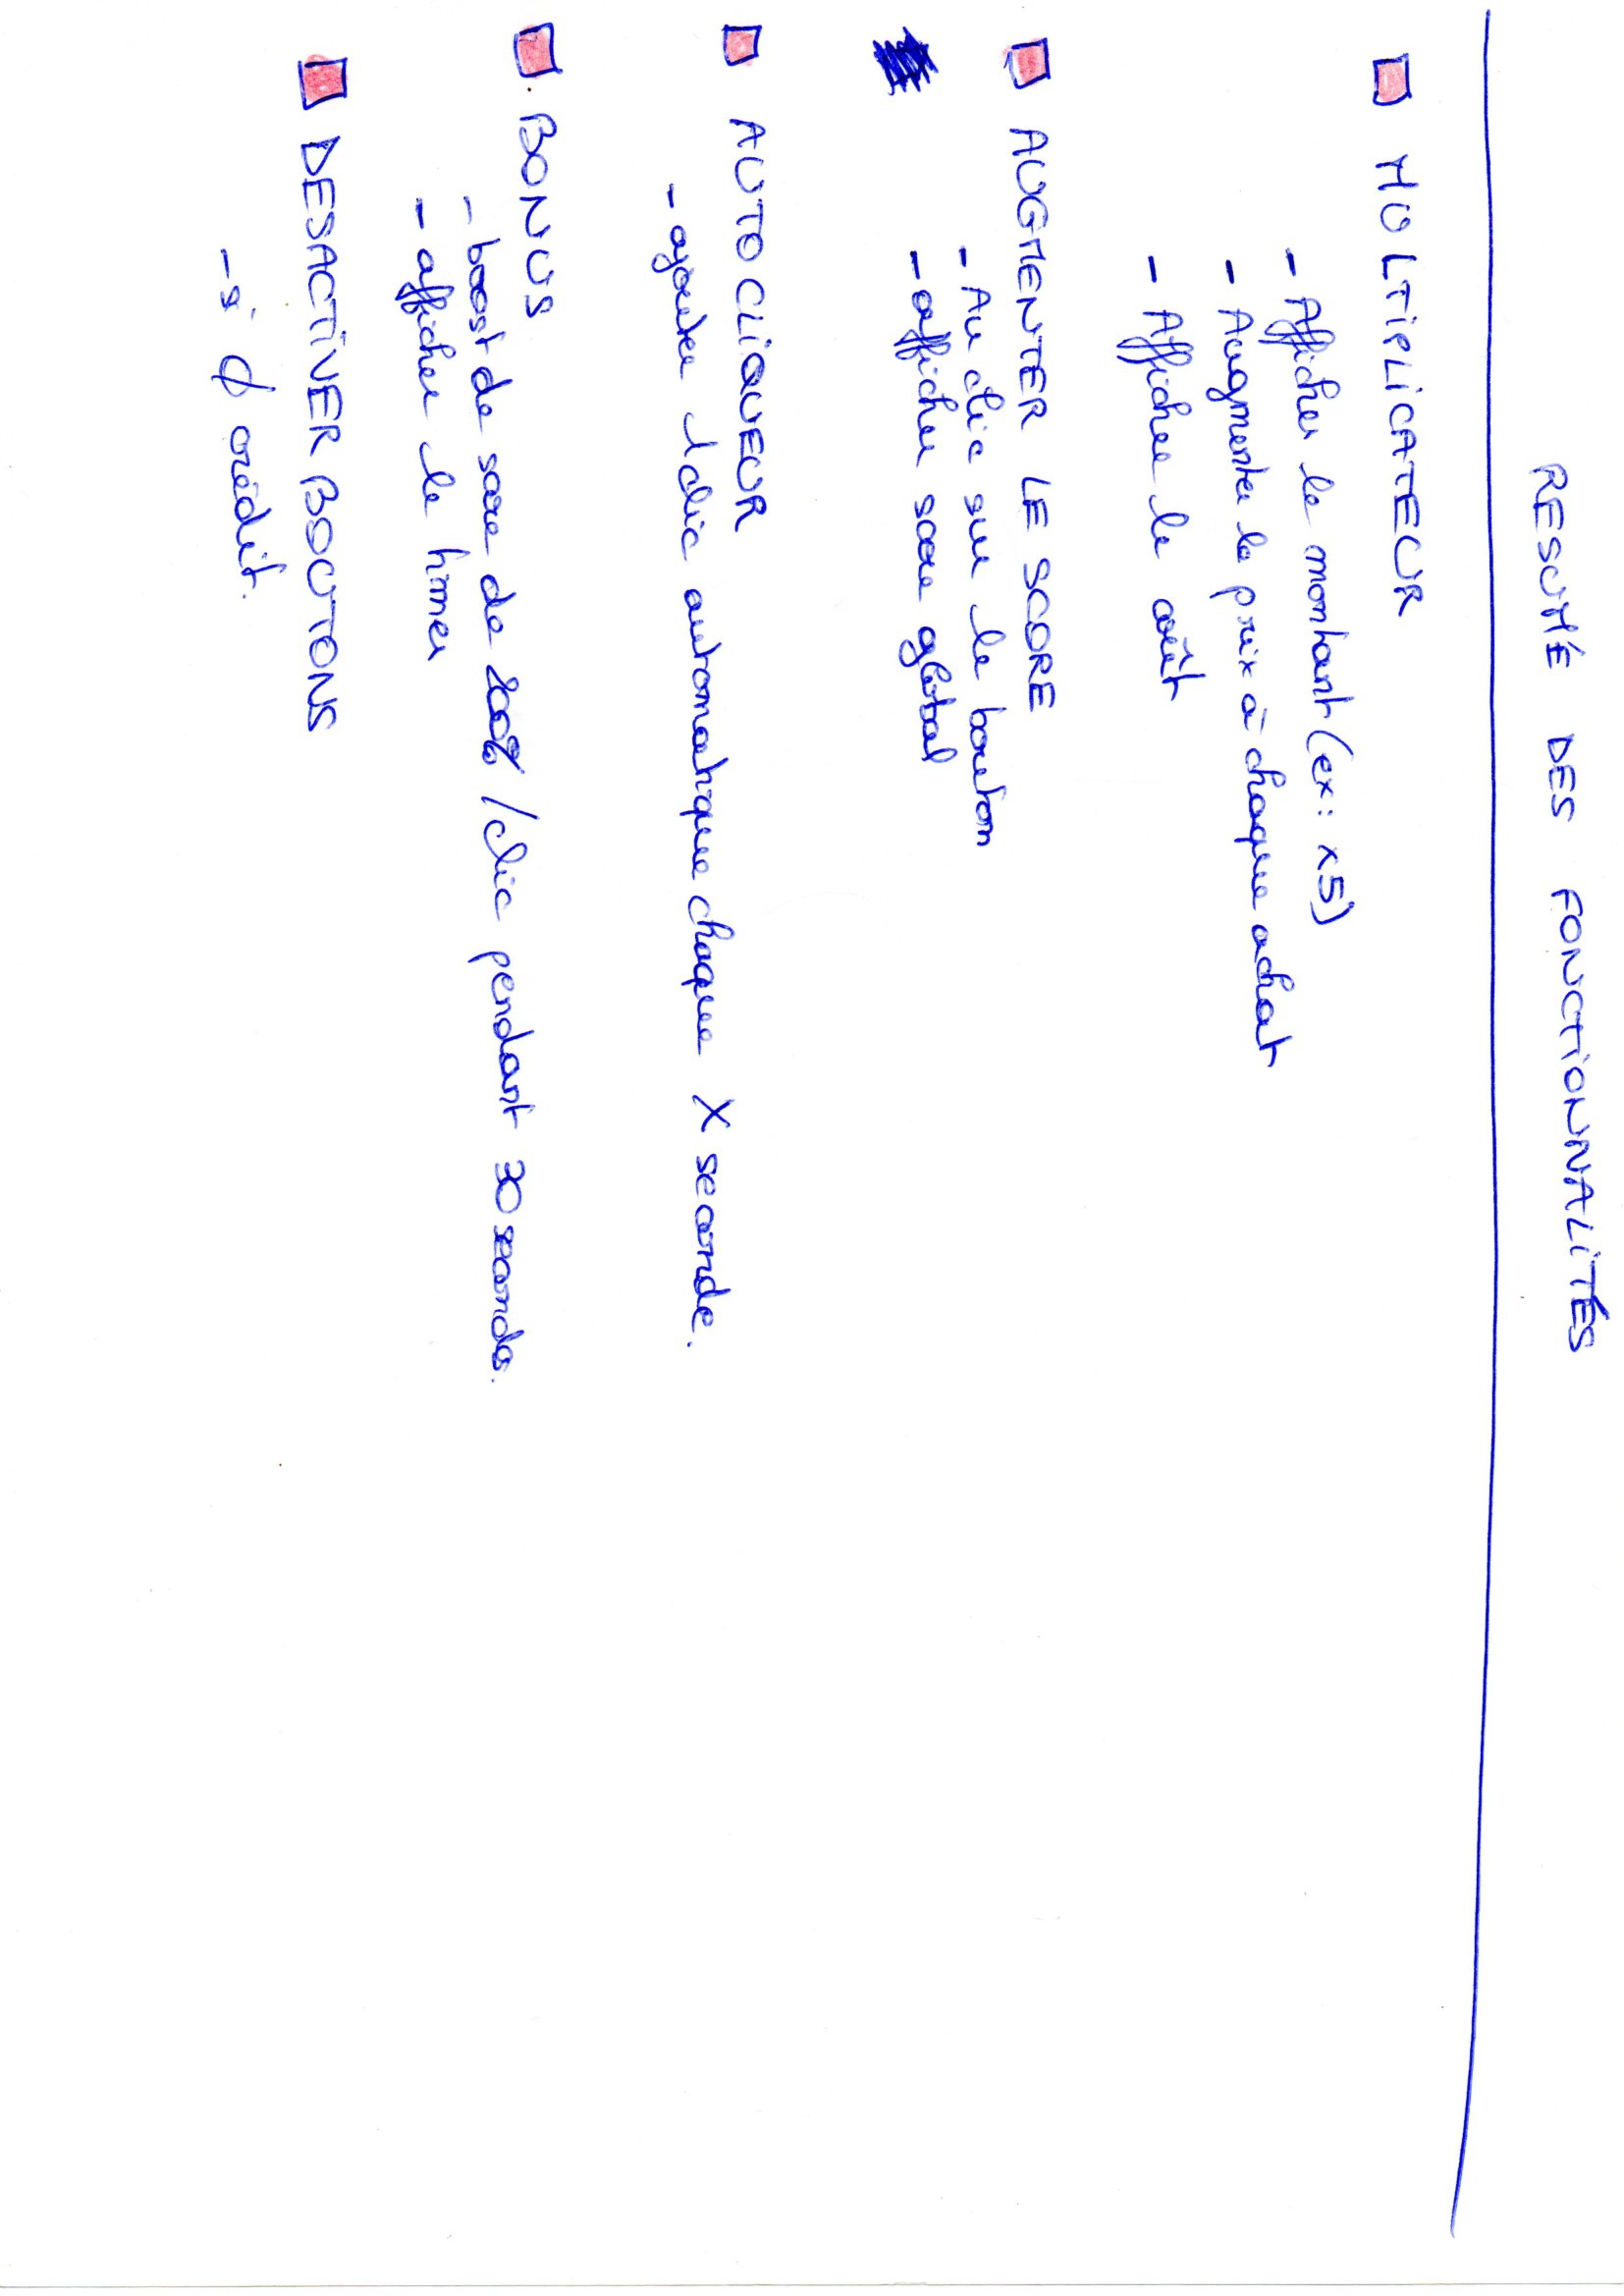 RESUMÉ DES FONCTIONNALITÉS
MULTIPLICATEUR
- Afficher le montant (ex: x5)
- Augmenter le prix à chaque achat
- Afficher le coût
AUGMENTER LE SCORE
- Au clic sur le bouton
- afficher score global
AUTOCLIQUEUR
- ajouter 1 clic automatique chaque X seconde.
BONUS
- boost de score de 200% / clic pendant 30 secondes.
- afficher le timer
DESACTIVER BOUTONS
- si Ø crédit.